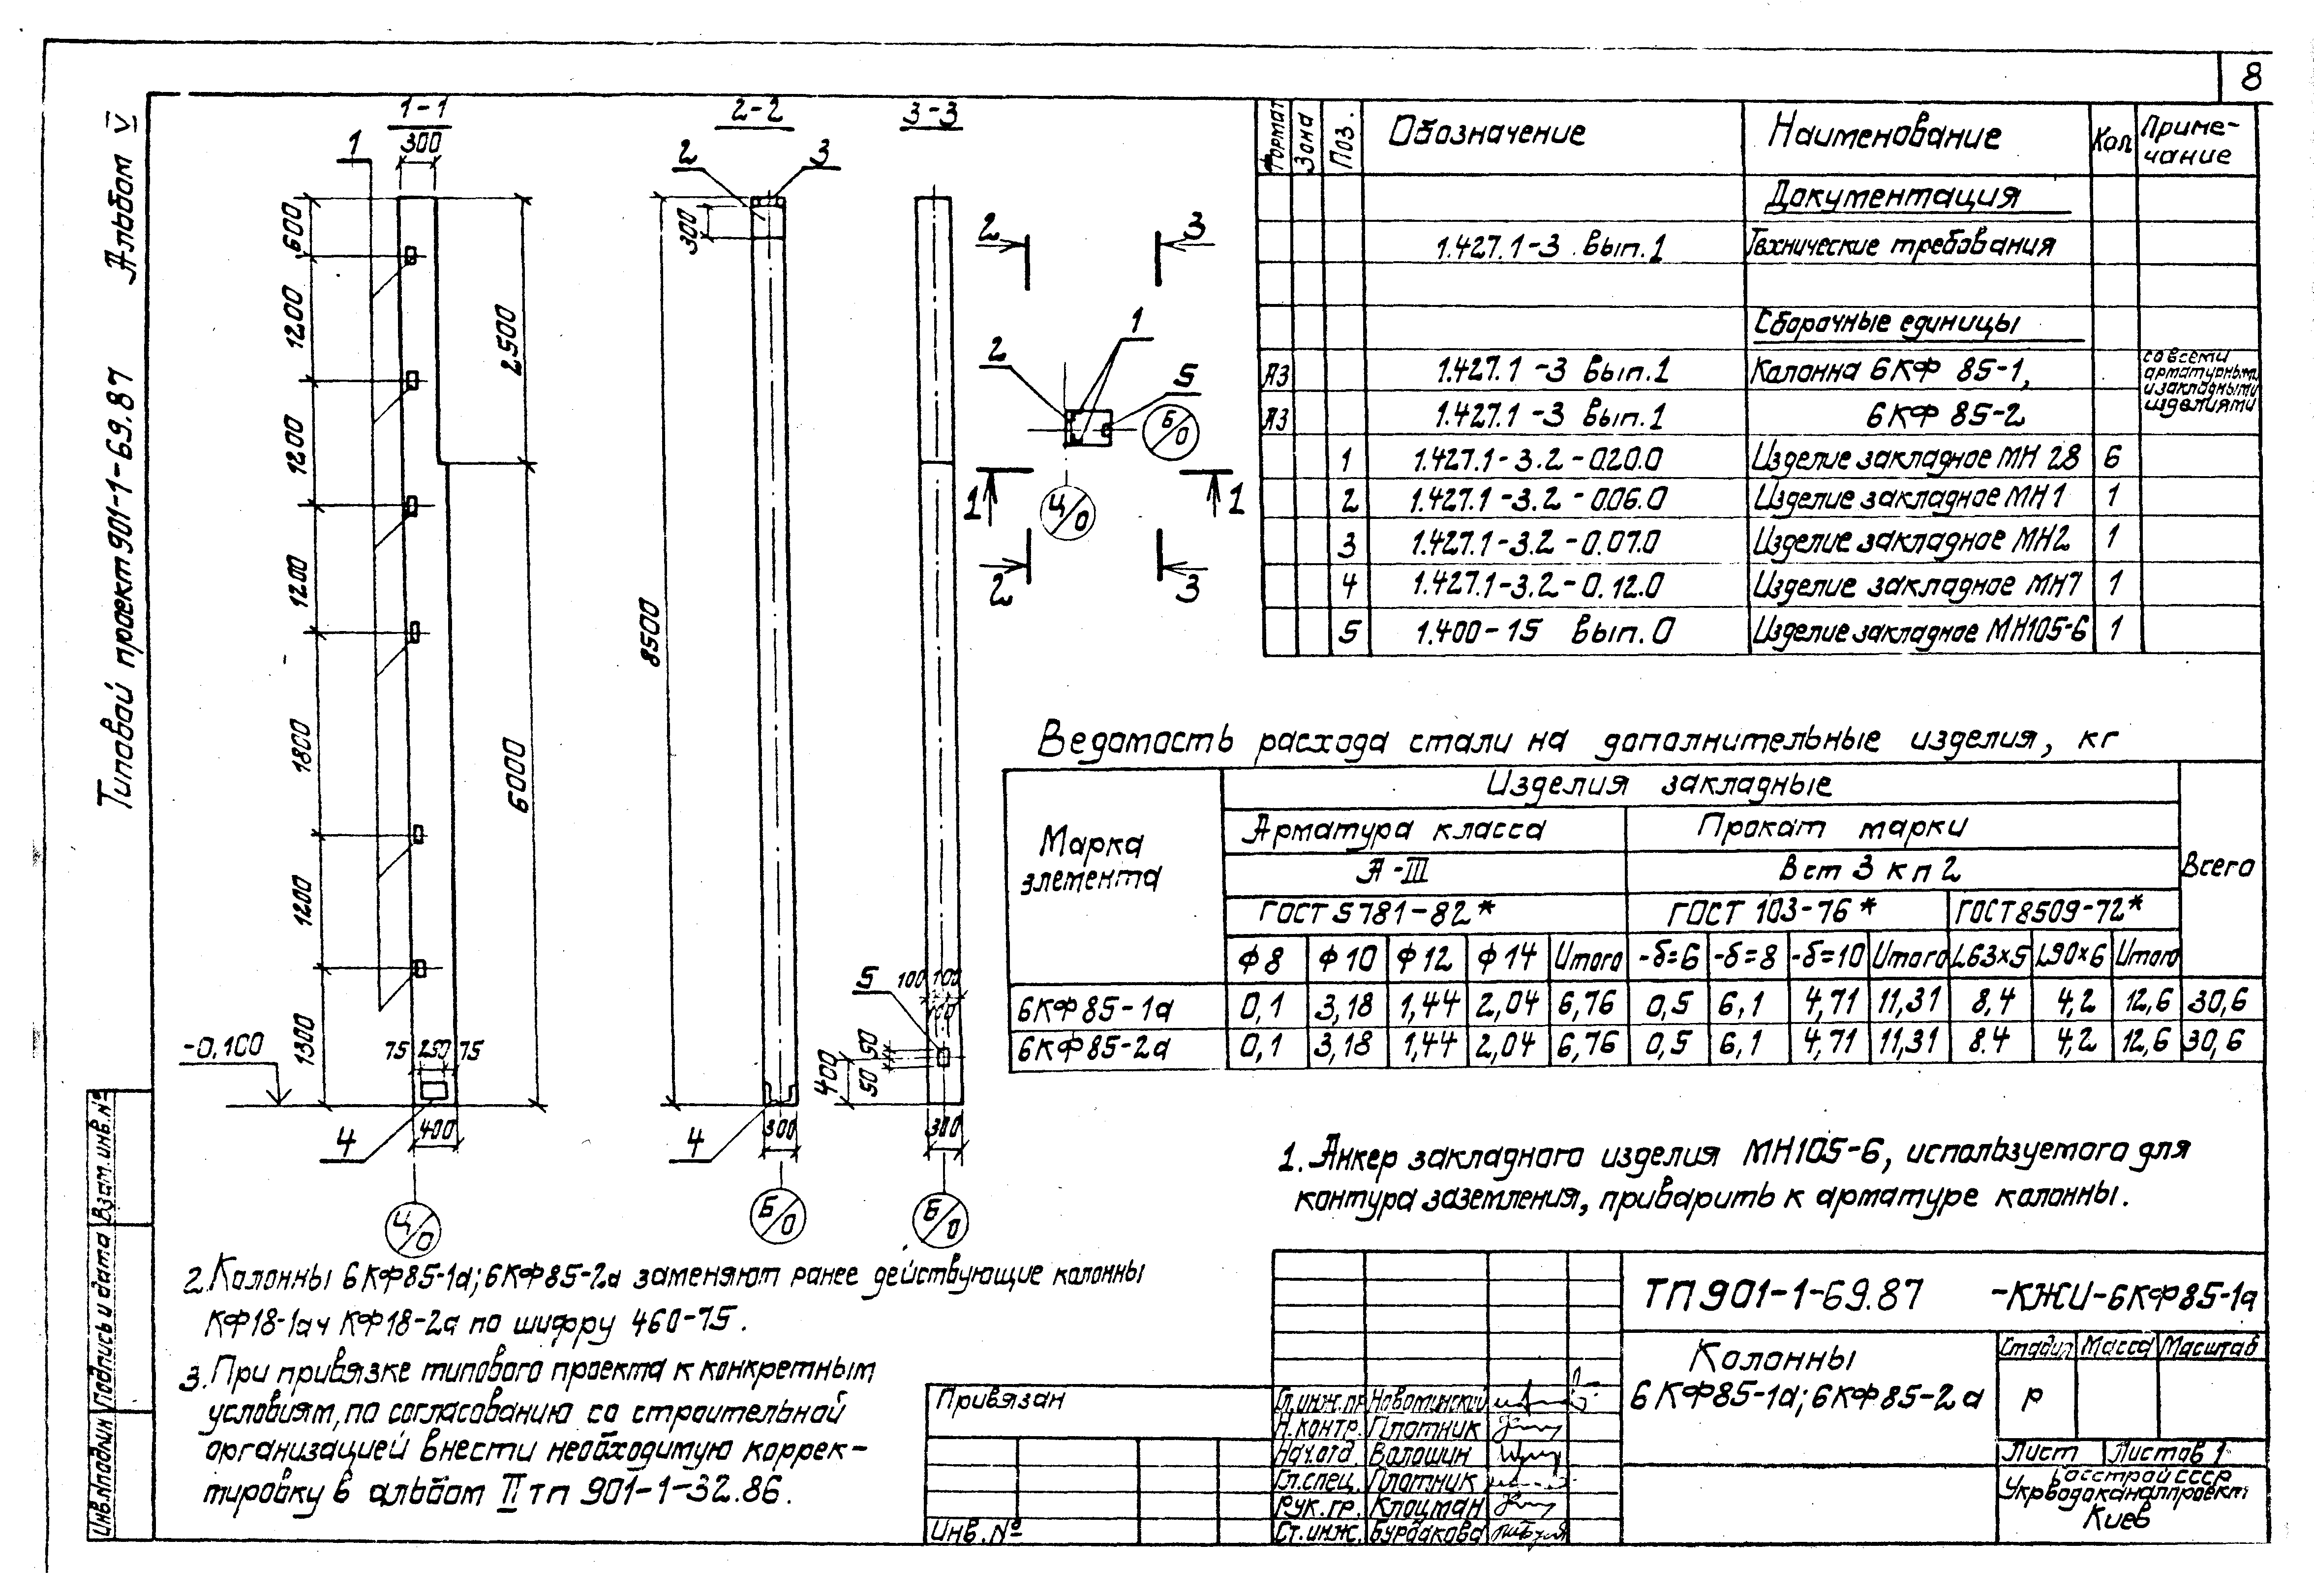 8
Альбом V
Типовой проект 901-1-69.87
Взам.инв.№
Подпись и дата
Инв.№подлин
1-1
300
1
600
1200
1200
1200
1800
1200
1300
2500
6000
-0,100
75 250 75
4
400
Ц/О
2-2
2
3
300
8500
4
300
Б/О
3-3
5
100 100
50
50
400
300
Б/О
2
3
1
2
5
Б/О
1
1
Ц/О
2
3
Формат Зона Поз. Обозначение Наименование Кол Приме-
чание
Документация
1.427.1-3 вып.1 Технические требования
Сборочные единицы
А3 1.427.1-3 вып.1 Колонна 6КФ 85-1, со всеми
арматурными
и закладными
изделиями
А3 1.427.1-3 вып.1 6КФ 85-2
1 1.427.1-3.2-0.20.0 Изделие закладное МН 28 6
2 1.427.1-3.2-0.06.0 Изделие закладное МН1 1
3 1.427.1-3.2-0.07.0 Изделие закладное МН2 1
4 1.427.1-3.2-0.12.0 Изделие закладное МН7 1
5 1.400-15 вып.0 Изделие закладное МН105-6 1
Ведомость расхода стали на дополнительные изделия, кг
Марка
элемента
Изделия закладные
Всего
Арматура класса Прокат марки
А-III Вст3кп2
ГОСТ 5781-82* ГОСТ 103-76* ГОСТ 8509-72*
Ф8 Ф10 Ф12 Ф14 Итого -δ=6 -δ=8 -δ=10 Итого L63×5 L90×6 Итого
6КФ85-1а 0,1 3,18 1,44 2,04 6,76 0,5 6,1 4,71 11,31 8,4 4,2 12,6 30,6
6КФ85-2а 0,1 3,18 1,44 2,04 6,76 0,5 6,1 4,71 11,31 8.4 4,2 12,6 30,6
1. Анкер закладного изделия МН105-6, используемого для
контура заземления, приварить к арматуре колонны.
2. Колонны 6КФ85-1а; 6КФ85-2а заменяют ранее действующие колонны
КФ18-1а и КФ18-2а по шифру 460-75.
3. При привязке типового проекта к конкретным
условиям, по согласованию со строительной
организацией внести необходимую коррек-
тировку в альбом II тп 901-1-32.86.
Привязан
Инв.№
Гл.инж.пр. Новоминский
Н.контр. Плотник
Нач.отд. Волошин
Гл.спец. Плотник
Рук.гр. Клоцман
Ст.инж. Бурдакова
ТП 901-1-69.87 -КЖИ-6КФ85-1а
Колонны
6КФ85-1а; 6КФ85-2а
Стадия Масса Масштаб
Р
Лист Листов 1
Госстрой СССР
Укрводоканалпроект
Киев